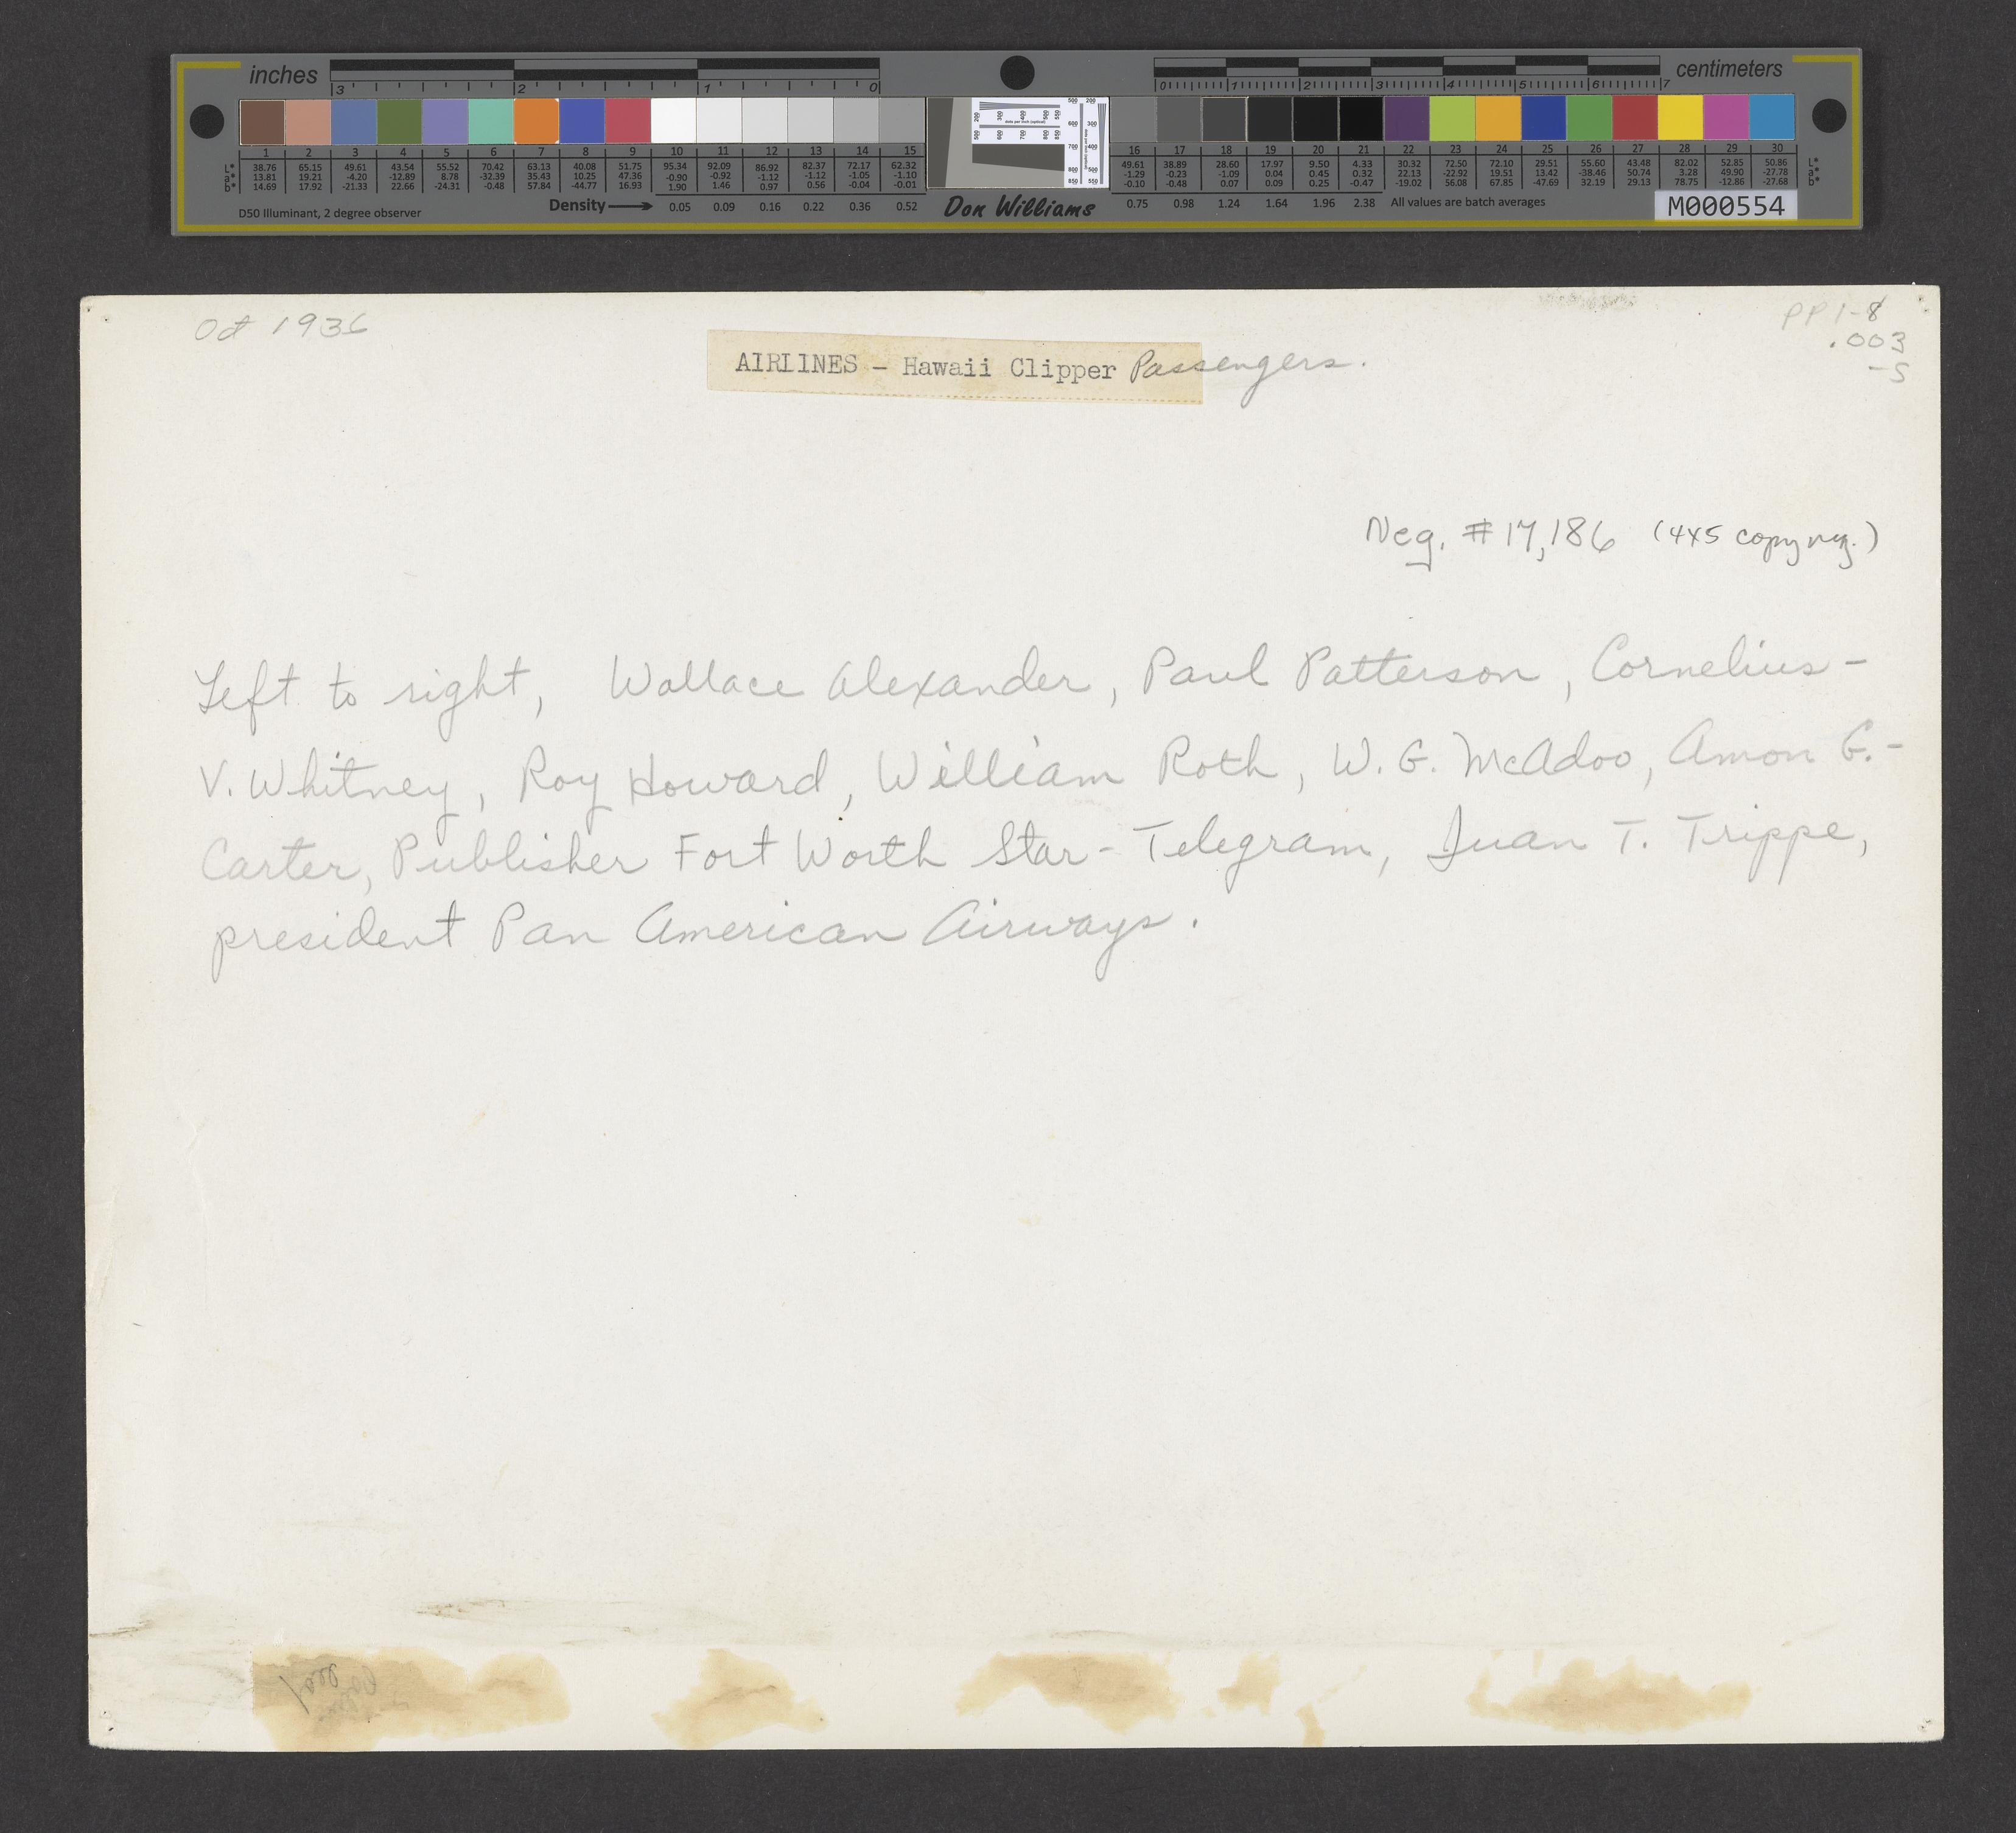 inches
centimeters
3 2 1 0
0 1 2 3 4 5 6 7
1 2 3 4 5 6 7 8 9 10 11 12 13 14 15
L* 38.76 65.15 49.61 43.54 55.52 70.42 63.13 40.08 51.75 95.34 92.09 86.92 82.37 72.17 62.32
a* 13.81 19.21 -4.20 -12.89 8.78 -32.39 35.43 10.25 47.36 -0.90 -0.92 -1.12 -1.12 -1.05 -1.10
b* 14.69 17.92 -21.33 22.66 -24.31 -0.48 57.84 -44.77 16.93 1.90 1.46 0.97 0.56 -0.04 -0.01
D50 Illuminant, 2 degree observer
Density 0.05 0.09 0.16 0.22 0.36 0.52
Don Williams
16 17 18 19 20 21 22 23 24 25 26 27 28 29 30
49.61 38.89 28.60 17.97 9.50 4.33 30.32 72.50 72.10 29.51 55.60 43.48 82.02 52.85 50.86 L*
-1.29 -0.23 -1.09 0.04 0.45 0.32 22.13 -22.92 19.51 13.42 -38.46 50.74 3.28 49.90 -27.78 a*
-0.10 -0.48 0.07 0.09 0.25 -0.47 -19.02 56.08 67.85 -47.69 32.19 29.13 78.75 -12.86 -27.68 b*
0.75 0.98 1.24 1.64 1.96 2.38 All values are batch averages
M000554
Oct 1936
PP1-8
.003
-S
AIRLINES - Hawaii Clipper Passengers.
Neg. #17,186 (4x5 copy neg.)
Left to right, Wallace Alexander, Paul Patterson, Cornelius-
V. Whitney, Roy Howard, William Roth, W. G. McAdoo, Amon G.-
Carter, Publisher Fort Worth Star-Telegram, Juan T. Trippe,
president Pan American Airways.